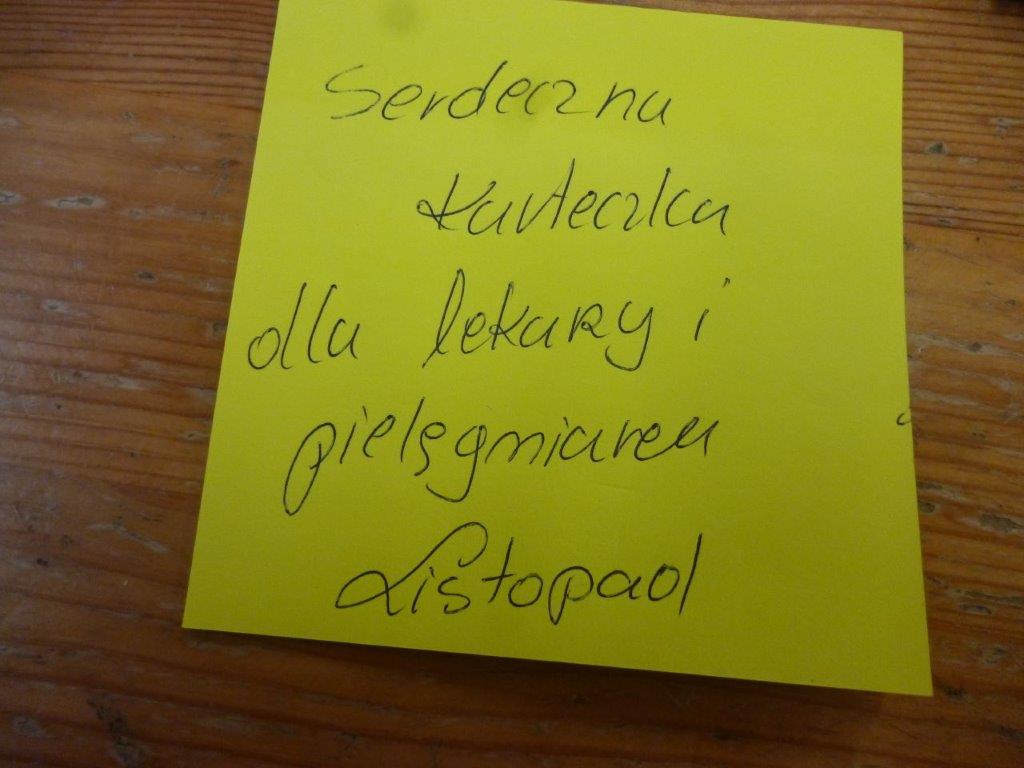 Serdeczna
karteczka
dla lekarzy i
pielęgniarek
Listopad